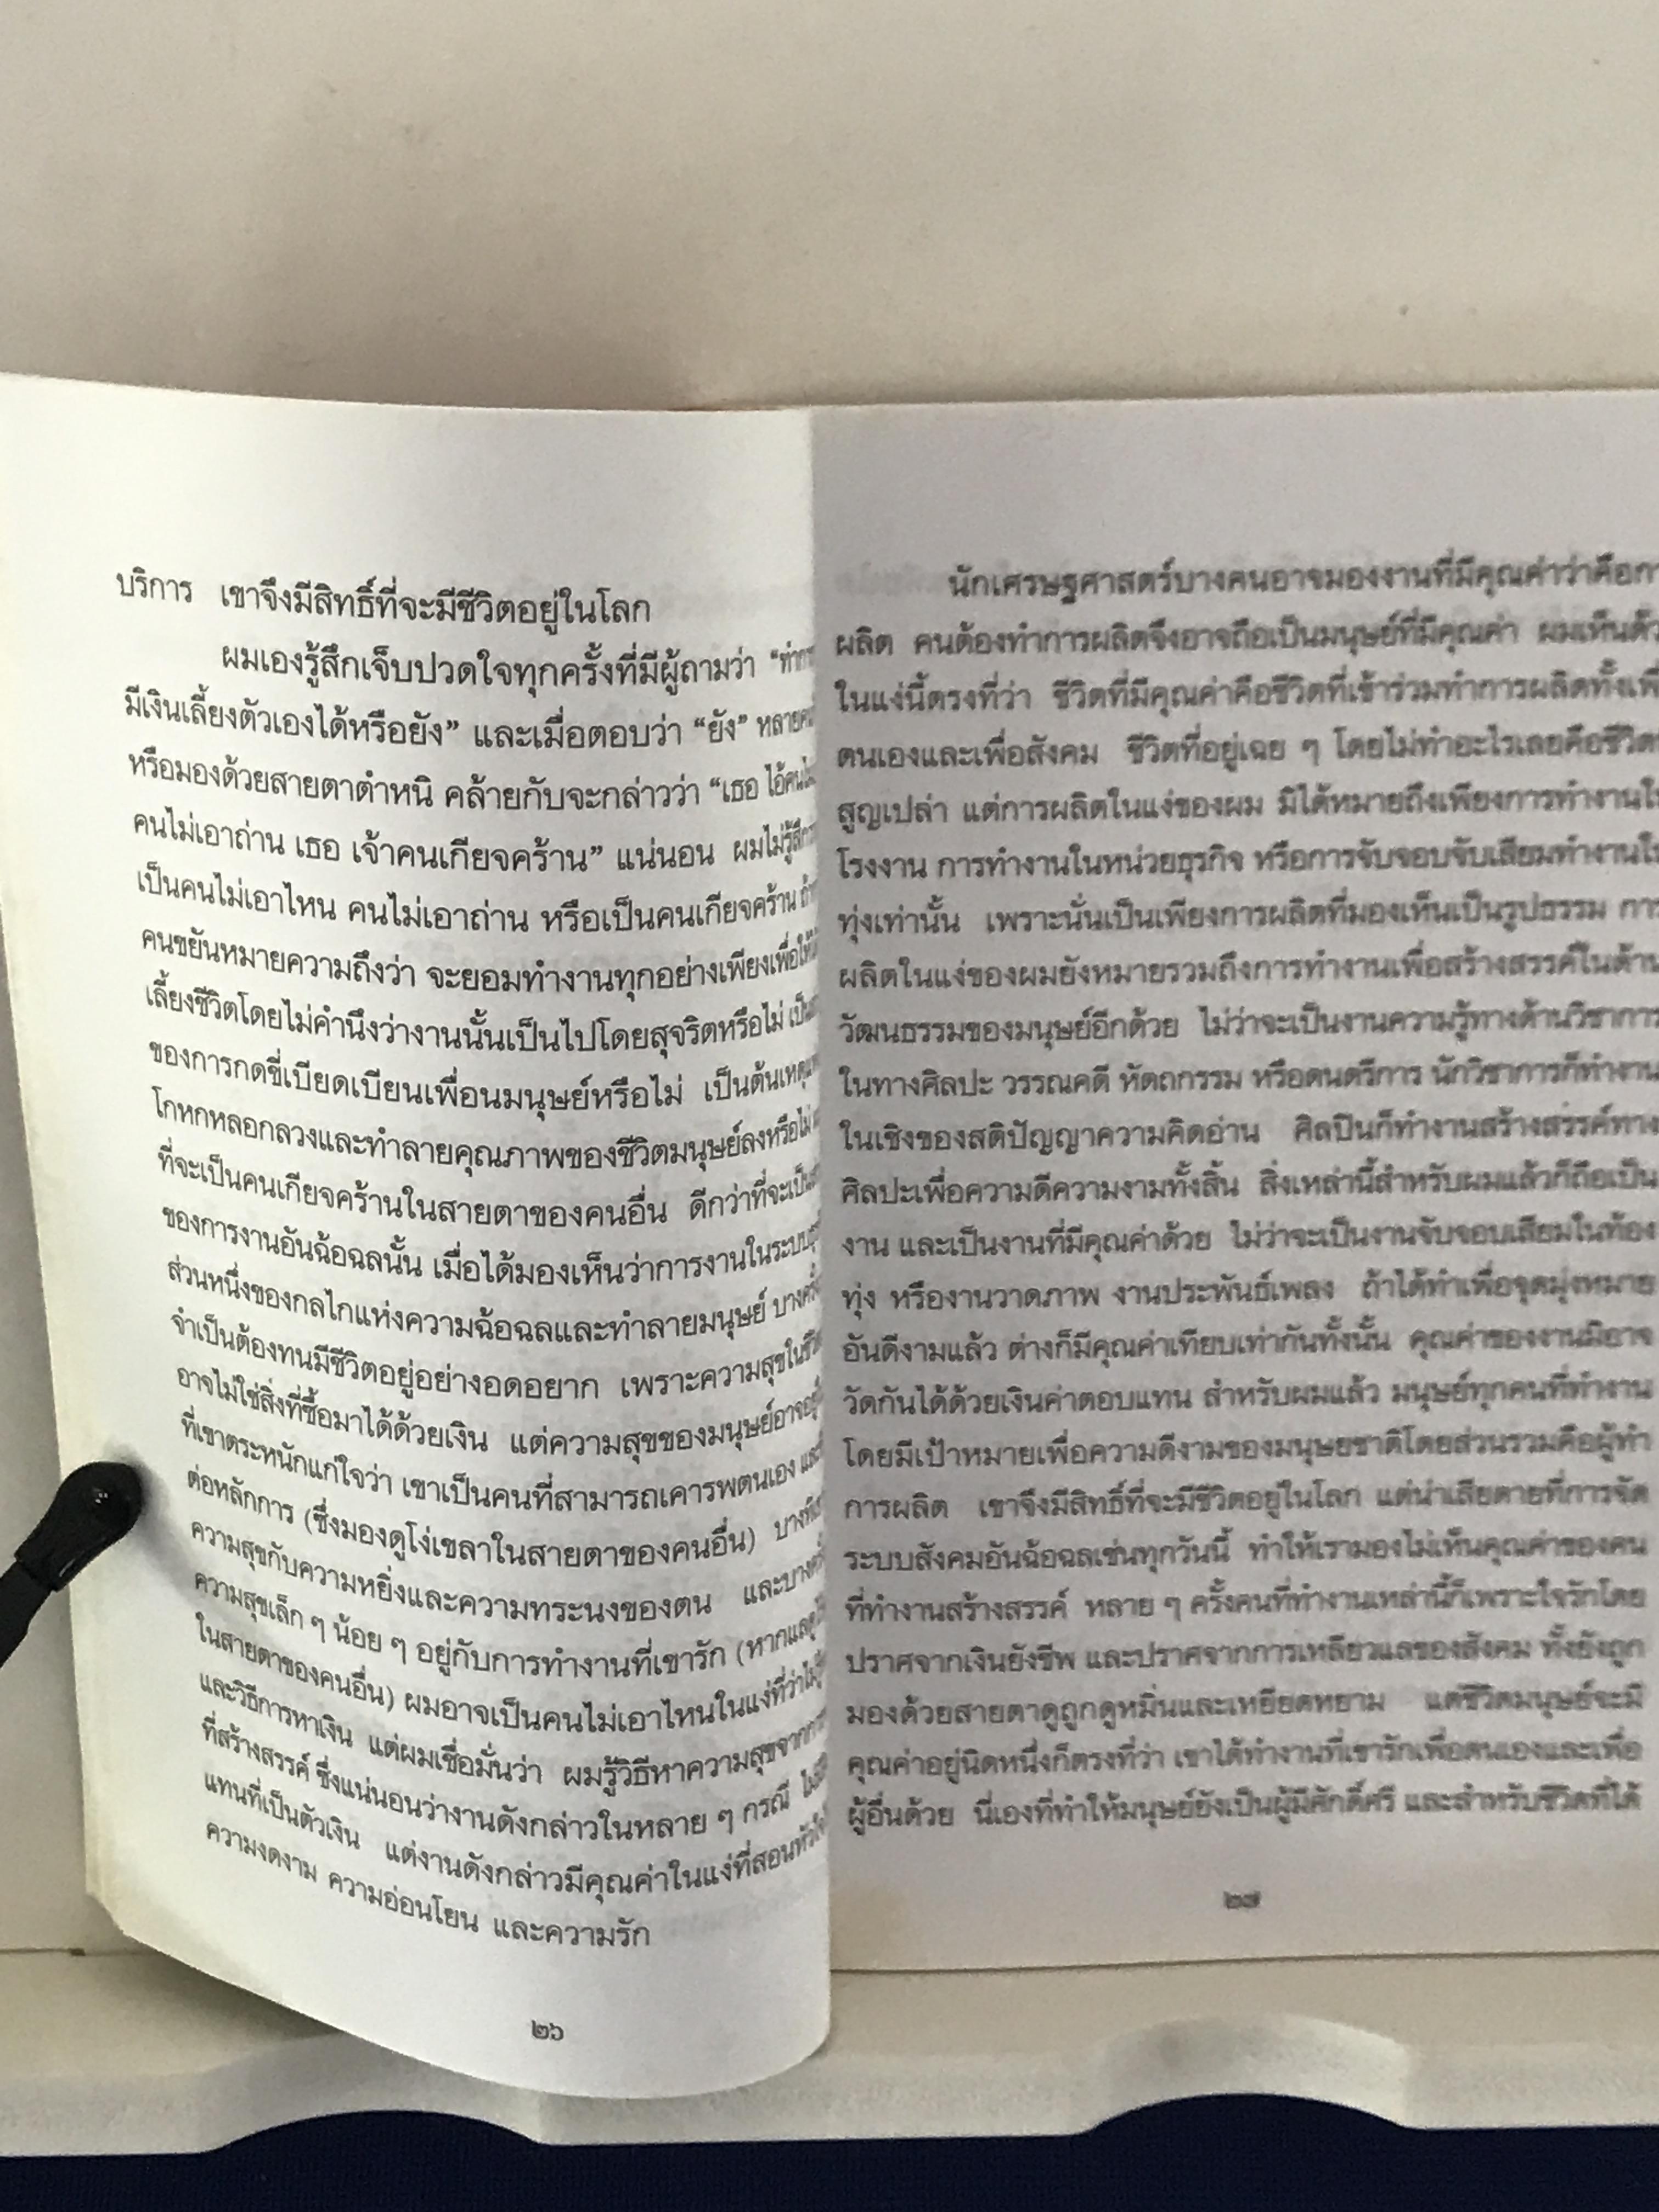 บริการ เขาจึงมีสิทธิ์ที่จะมีชีวิตอยู่ในโลก
ผมเองรู้สึกเจ็บปวดใจทุกครั้งที่มีผู้ถามว่า
มีเงินเลี้ยงตัวเองได้หรือยัง” และเมื่อตอบว่า “ยัง”
หรือมองด้วยสายตาตำหนิ คล้ายกับจะกล่าวว่า “เธอ
คนไม่เอาถ่าน เธอ เจ้าคนเกียจคร้าน” แน่นอน ผมไม่รู้สึก
เป็นคนไม่เอาไหน คนไม่เอาถ่าน หรือเป็นคนเกียจคร้าน
คนขยันหมายความถึงว่า จะยอมทำงานทุกอย่างเพียงเพื่อ
เลี้ยงชีวิตโดยไม่คำนึงว่างานนั้นเป็นไปโดยสุจริตหรือไม่
ของการกดขี่เบียดเบียนเพื่อนมนุษย์หรือไม่ เป็นต้นเหตุ
โกหกหลอกลวงและทำลายคุณภาพของชีวิตมนุษย์ลงหรือไม่
ที่จะเป็นคนเกียจคร้านในสายตาของคนอื่น ดีกว่าที่จะเป็น
ของการงานอันฉ้อฉลนั้น เมื่อได้มองเห็นว่าการงานในระบบ
ส่วนหนึ่งของกลไกแห่งความฉ้อฉลและทำลายมนุษย์
จำเป็นต้องทนมีชีวิตอยู่อย่างอดอยาก เพราะความสุขใน
อาจไม่ใช่สิ่งที่ซื้อมาได้ด้วยเงิน แต่ความสุขของมนุษย์
ที่เขาตระหนักแก่ใจว่า เขาเป็นคนที่สามารถเคารพตนเอง
ต่อหลักการ (ซึ่งมองดูโง่เขลาในสายตาของคนอื่น)
ความสุขกับความหยิ่งและความทระนงของตน
ความสุขเล็ก ๆ น้อย ๆ อยู่กับการทำงานที่เขารัก
ในสายตาของคนอื่น) ผมอาจเป็นคนไม่เอาไหนในแง่ที่ว่า
และวิธีการหาเงิน แต่ผมเชื่อมั่นว่า ผมรู้วิธีหาความสุข
ที่สร้างสรรค์ ซึ่งแน่นอนว่างานดังกล่าวในหลาย ๆ กรณี
แทนที่เป็นตัวเงิน แต่งานดังกล่าวมีคุณค่าในแง่ที่สอน
ความงดงาม ความอ่อนโยน และความรัก
๒๖
นักเศรษฐศาสตร์บางคนอาจมองงานที่มีคุณค่าว่าคือ
ผลิต คนต้องทำการผลิตจึงอาจถือเป็นมนุษย์ที่มีคุณค่า ผมเห็น
ในแง่นี้ตรงที่ว่า ชีวิตที่มีคุณค่าคือชีวิตที่เข้าร่วมทำการผลิตทั้ง
ตนเองและเพื่อสังคม ชีวิตที่อยู่เฉย ๆ โดยไม่ทำอะไรเลยคือ
สูญเปล่า แต่การผลิตในแง่ของผม มิได้หมายถึงเพียงการทำงาน
โรงงาน การทำงานในหน่วยธุรกิจ หรือการจับจอบจับเสียมทำงาน
ทุ่งเท่านั้น เพราะนั่นเป็นเพียงการผลิตที่มองเห็นเป็นรูปธรรม
ผลิตในแง่ของผมยังหมายรวมถึงการทำงานเพื่อสร้างสรรค์ใน
วัฒนธรรมของมนุษย์อีกด้วย ไม่ว่าจะเป็นงานความรู้ทางด้านวิชาการ
ในทางศิลปะ วรรณคดี หัตถกรรม หรือดนตรีการ นักวิชาการก็ทำงาน
ในเชิงของสติปัญญาความคิดอ่าน ศิลปินก็ทำงานสร้างสรรค์ทาง
ศิลปะเพื่อความดีความงามทั้งสิ้น สิ่งเหล่านี้สำหรับผมแล้วก็ถือเป็น
งาน และเป็นงานที่มีคุณค่าด้วย ไม่ว่าจะเป็นงานจับจอบเสียมในท้อง
ทุ่ง หรืองานวาดภาพ งานประพันธ์เพลง ถ้าได้ทำเพื่อจุดมุ่งหมาย
อันดีงามแล้ว ต่างก็มีคุณค่าเทียบเท่ากันทั้งนั้น คุณค่าของงานมิอาจ
วัดกันได้ด้วยเงินค่าตอบแทน สำหรับผมแล้ว มนุษย์ทุกคนที่ทำงาน
โดยมีเป้าหมายเพื่อความดีงามของมนุษยชาติโดยส่วนรวมคือผู้ทำ
การผลิต เขาจึงมีสิทธิ์ที่จะมีชีวิตอยู่ในโลก แต่น่าเสียดายที่การจัด
ระบบสังคมอันฉ้อฉลเช่นทุกวันนี้ ทำให้เรามองไม่เห็นคุณค่าของคน
ที่ทำงานสร้างสรรค์ หลาย ๆ ครั้งคนที่ทำงานเหล่านี้ก็เพราะใจรักโดย
ปราศจากเงินยังชีพ และปราศจากการเหลียวแลของสังคม ทั้งยังถูก
มองด้วยสายตาดูถูกดูหมิ่นและเหยียดหยาม แต่ชีวิตมนุษย์จะมี
คุณค่าอยู่นิดหนึ่งก็ตรงที่ว่า เขาได้ทำงานที่เขารักเพื่อตนเองและเพื่อ
ผู้อื่นด้วย นี่เองที่ทำให้มนุษย์ยังเป็นผู้มีศักดิ์ศรี และสำหรับชีวิตที่ได้
๒๗